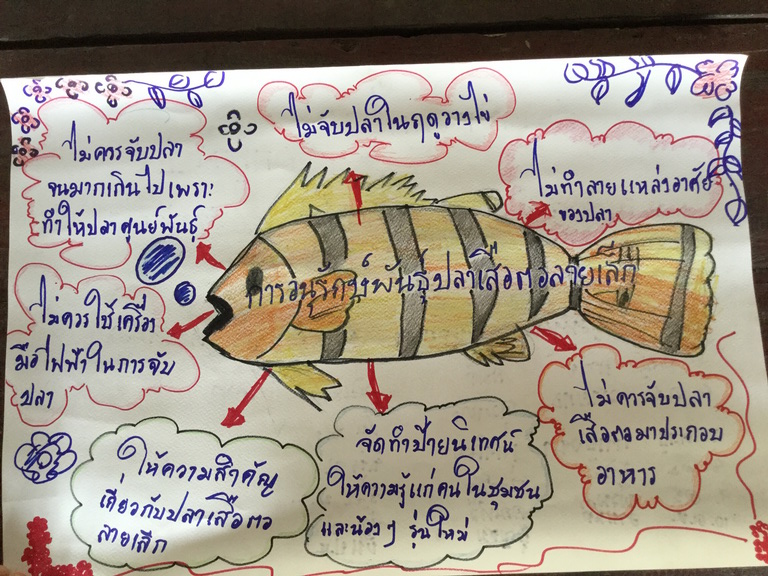 ไม่จับปลาในฤดูวางไข่
ไม่ควรจับปลา
จนมากเกินไปเพราะ
ทำให้ปลาศูนย์พันธุ์
ไม่ทำลายแหล่งอาศัย
ของปลา
การอนุรักษ์พันธุ์ปลาเสือตอลายเล็ก
ไม่ควรใช้เครื่อง
มือไฟฟ้าในการจับ
ปลา
ไม่ควรจับปลา
เสือตอมาประกอบ
อาหาร
ให้ความสำคัญ
เกี่ยวกับปลาเสือตอ
ลายเล็ก
จัดทำป้ายนิเทศน์
ให้ความรู้แก่คนในชุมชน
และน้องๆ รุ่นใหม่